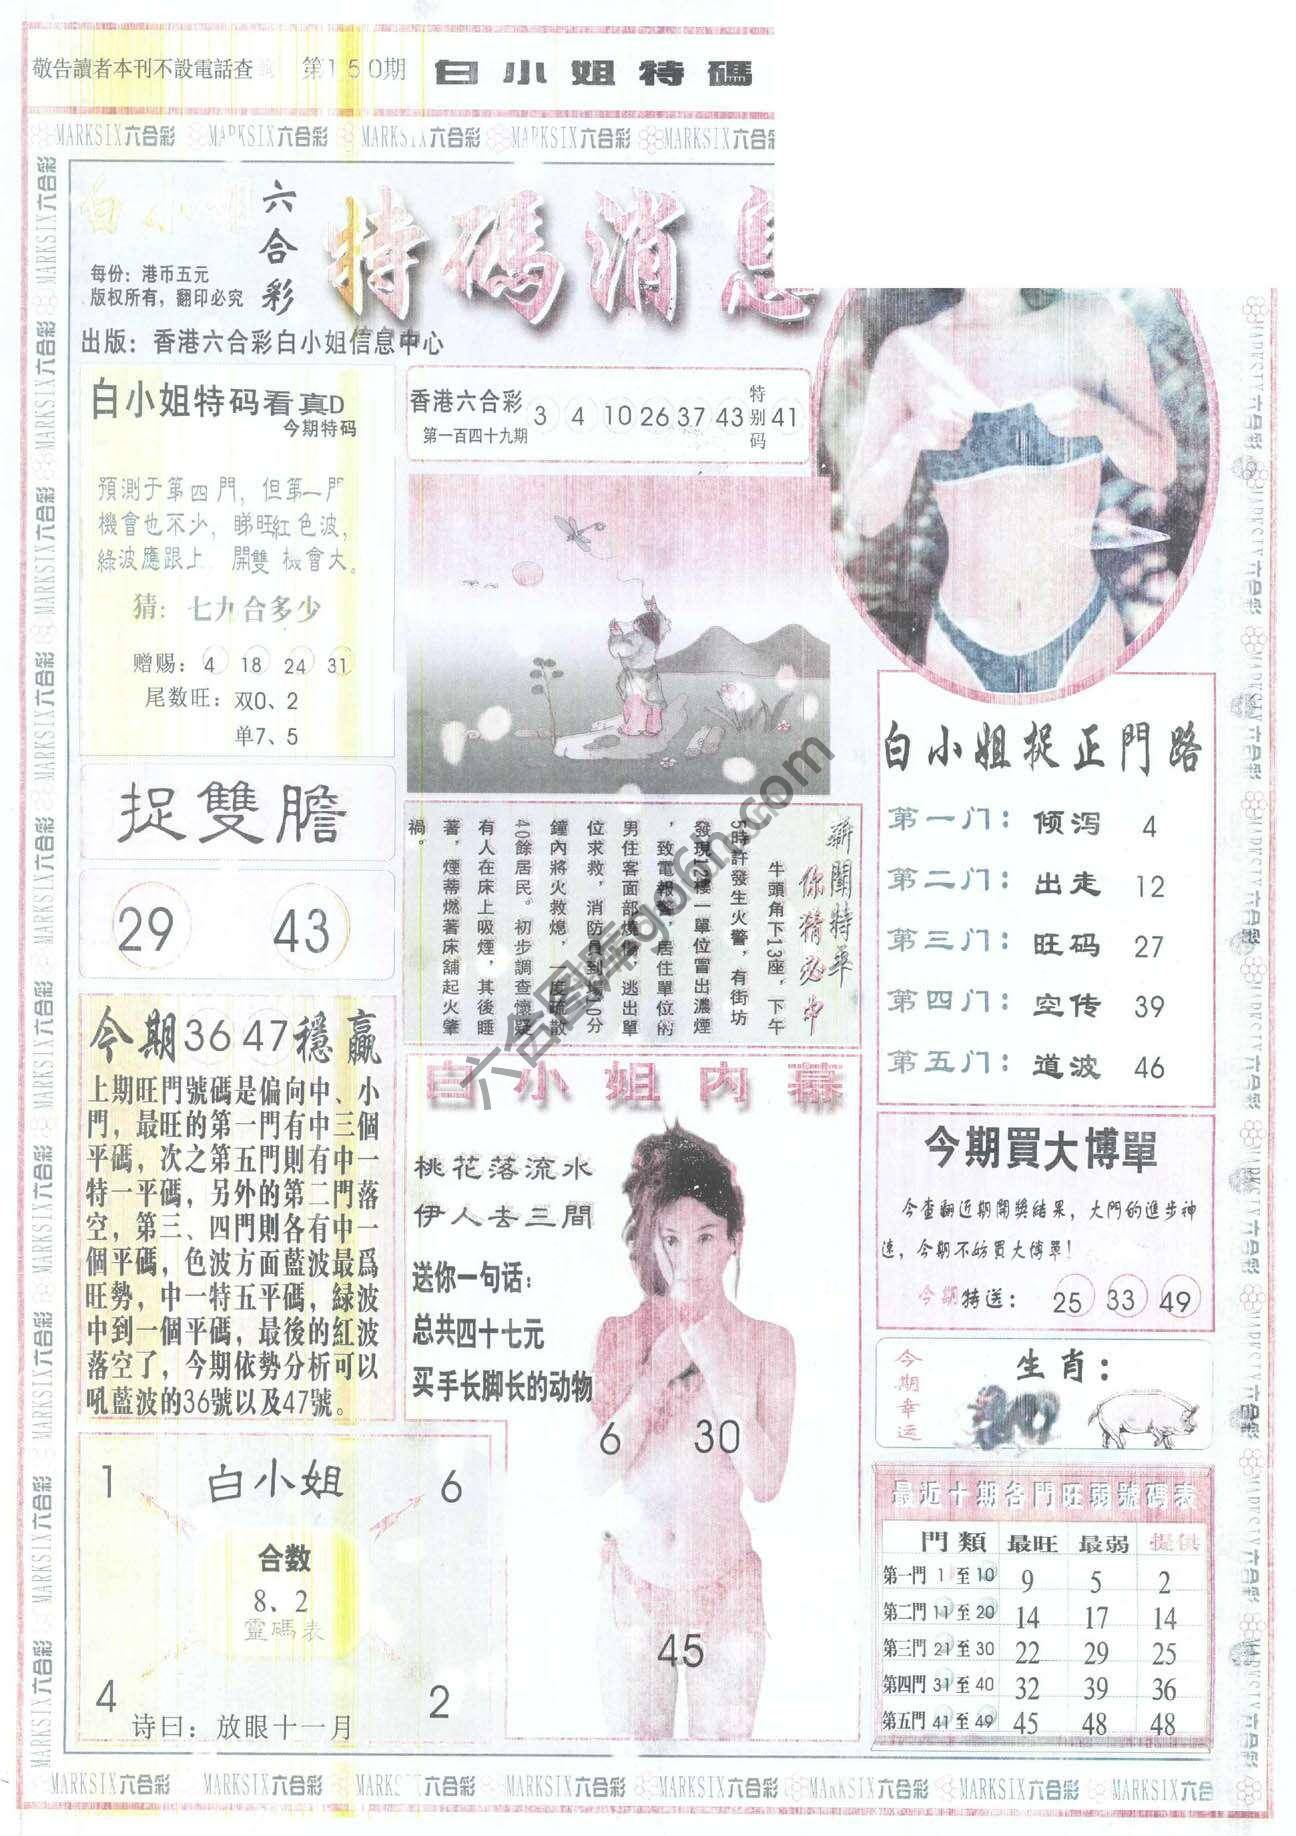 敬告讀者本刊不設電話查 第150期 白小姐特碼
MARKSIX六合彩 MARKSIX六合彩 MARKSIX六合彩 MARKSIX六合彩 MARKSIX六合彩
白小姐
六合彩
特碼消息
每份：港币五元
版权所有，翻印必究
出版：香港六合彩白小姐信息中心
白小姐特码看真D
今期特码
預測于第四門，但第一門
機會也不少，睇旺紅色波，
綠波應跟上 開雙 機會大。
猜：七九合多少
赠赐：4 18 24 31
尾数旺：双0、2
单7、5
香港六合彩
第一百四十九期
3 4 10 26 37 43 特别码 41
捉雙膽
29 43
新聞特平
你猜必中
牛頭角下13座，下午
5時許發生火警，有街坊
發現12樓一單位冒出濃煙
，致電報警，居住單位的
男住客面部燒傷，逃出單
位求救，消防員到場10分
鐘內將火救熄，一度疏散
40餘居民。初步調查懷疑
有人在床上吸煙，其後睡
著，煙蒂燃著床舖起火肇
禍。
白小姐捉正門路
第一门：倾泻 4
第二门：出走 12
第三门：旺码 27
第四门：空传 39
第五门：道波 46
今期36 47穩贏
上期旺門號碼是偏向中、小
門，最旺的第一門有中三個
平碼，次之第五門則有中一
特一平碼，另外的第二門落
空，第三、四門則各有中一
個平碼，色波方面藍波最爲
旺勢，中一特五平碼，緑波
中到一個平碼，最後的紅波
落空了，今期依勢分析可以
吼藍波的36號以及47號。
白小姐内幕
桃花落流水
伊人去三間
送你一句话：
总共四十七元
买手长脚长的动物
6 30
45
今期買大博單
今查翻近期開獎結果，大門的進步神
速，今期不妨買大博單！
今期特送：25 33 49
今期幸运
生肖：
1 白小姐 6
合数
8、2
靈碼表
4 2
诗曰：放眼十一月
最近十期各門旺弱號碼表
門類 最旺 最弱 提供
第一門 1 至 10 9 5 2
第二門 11 至 20 14 17 14
第三門 21 至 30 22 29 25
第四門 31 至 40 32 39 36
第五門 41 至 49 45 48 48
MARKSIX六合彩 MARKSIX六合彩 MARKSIX六合彩 MARKSIX六合彩 MARKSIX六合彩 MARKSIX六合彩 MARKSIX六合彩 MARKSIX六合
六合图库go6h.com